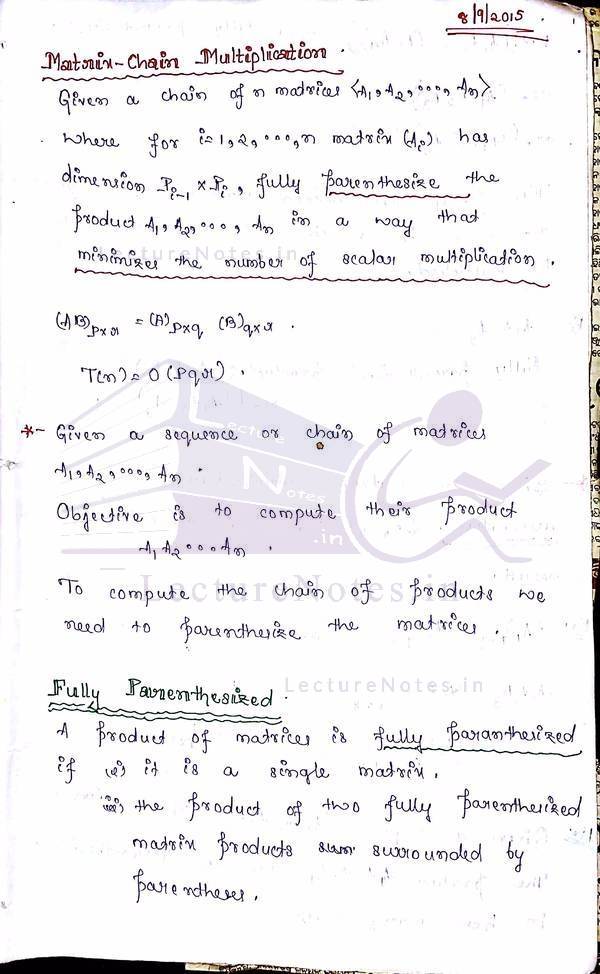 8/9/2015
Matrix-Chain Multiplication.
Given a chain of n matrices <A1, A2, ..., An>.
where for i=1,2,...,n matrix (Ai) has
dimension Pi-1 x Pi, fully parenthesize the
product A1, A2, ..., An in a way that
LectureNotes.in
minimizes the number of scalar multiplication.
(AB)pxr = (A)pxq (B)qxr.
T(n) = O(Pqr).
*- Given a sequence or chain of matrices
Lecture
A1, A2, ..., An.
Notes
Objective is to compute their product
.in
A1 A2 ... An.
To compute the chain of products we
LectureNotes.in
need to parenthesize the matrices.
Fully Parenthesized.
LectureNotes.in
A product of matrices is fully paranthesized
if (i) it is a single matrix.
(ii) the product of two fully parenthesized
matrix products surrounded by
parentheses.